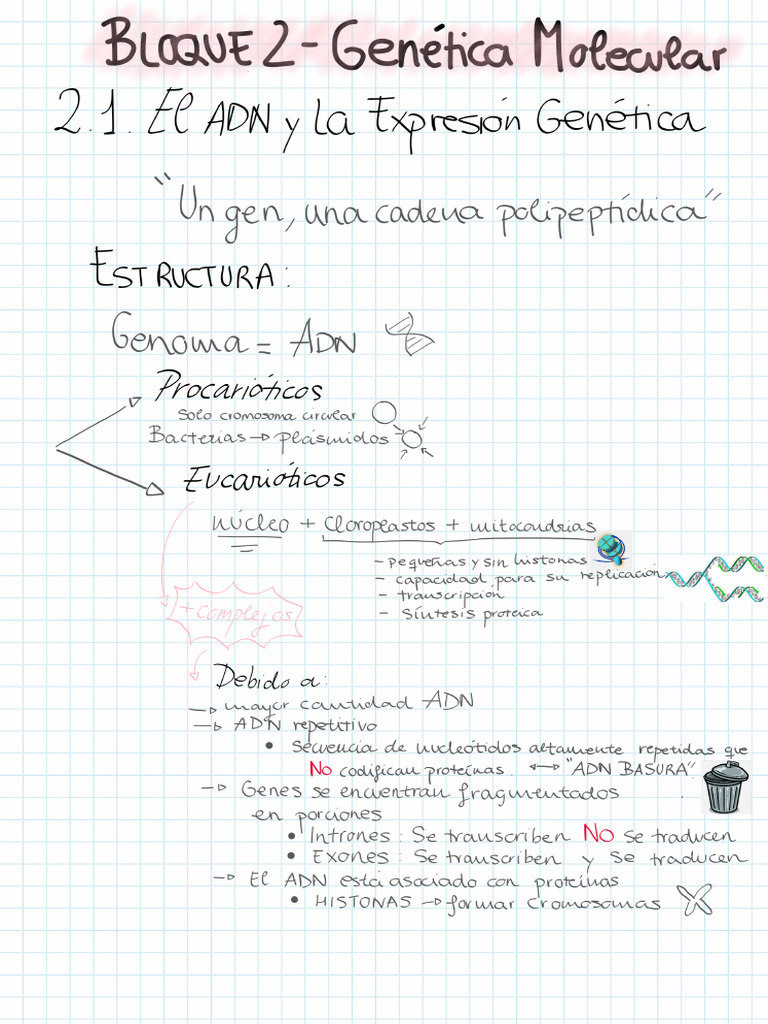 BLOQUE 2 - Genética Molecular
2.1. El ADN y La Expresión Genética
"Un gen, una cadena polipeptídica"
ESTRUCTURA:
Genoma = ADN
Procarióticos
Solo cromosoma circular
Bacterias → plásmidos
Eucarióticos
núcleo + cloroplastos + mitocondrias
- pequeñas y sin histonas
- capacidad para su replicación
- transcripción
- síntesis proteica
+ complejos
Debido a:
→ mayor cantidad ADN
→ ADN repetitivo
• Secuencia de nucleótidos altamente repetidas que
NO codifican proteínas. ↔ "ADN BASURA".
→ Genes se encuentran fragmentados
en porciones
• Intrones: Se transcriben NO se traducen
• Exones: Se transcriben y se traducen
→ El ADN está asociado con proteínas
• HISTONAS → formar cromosomas